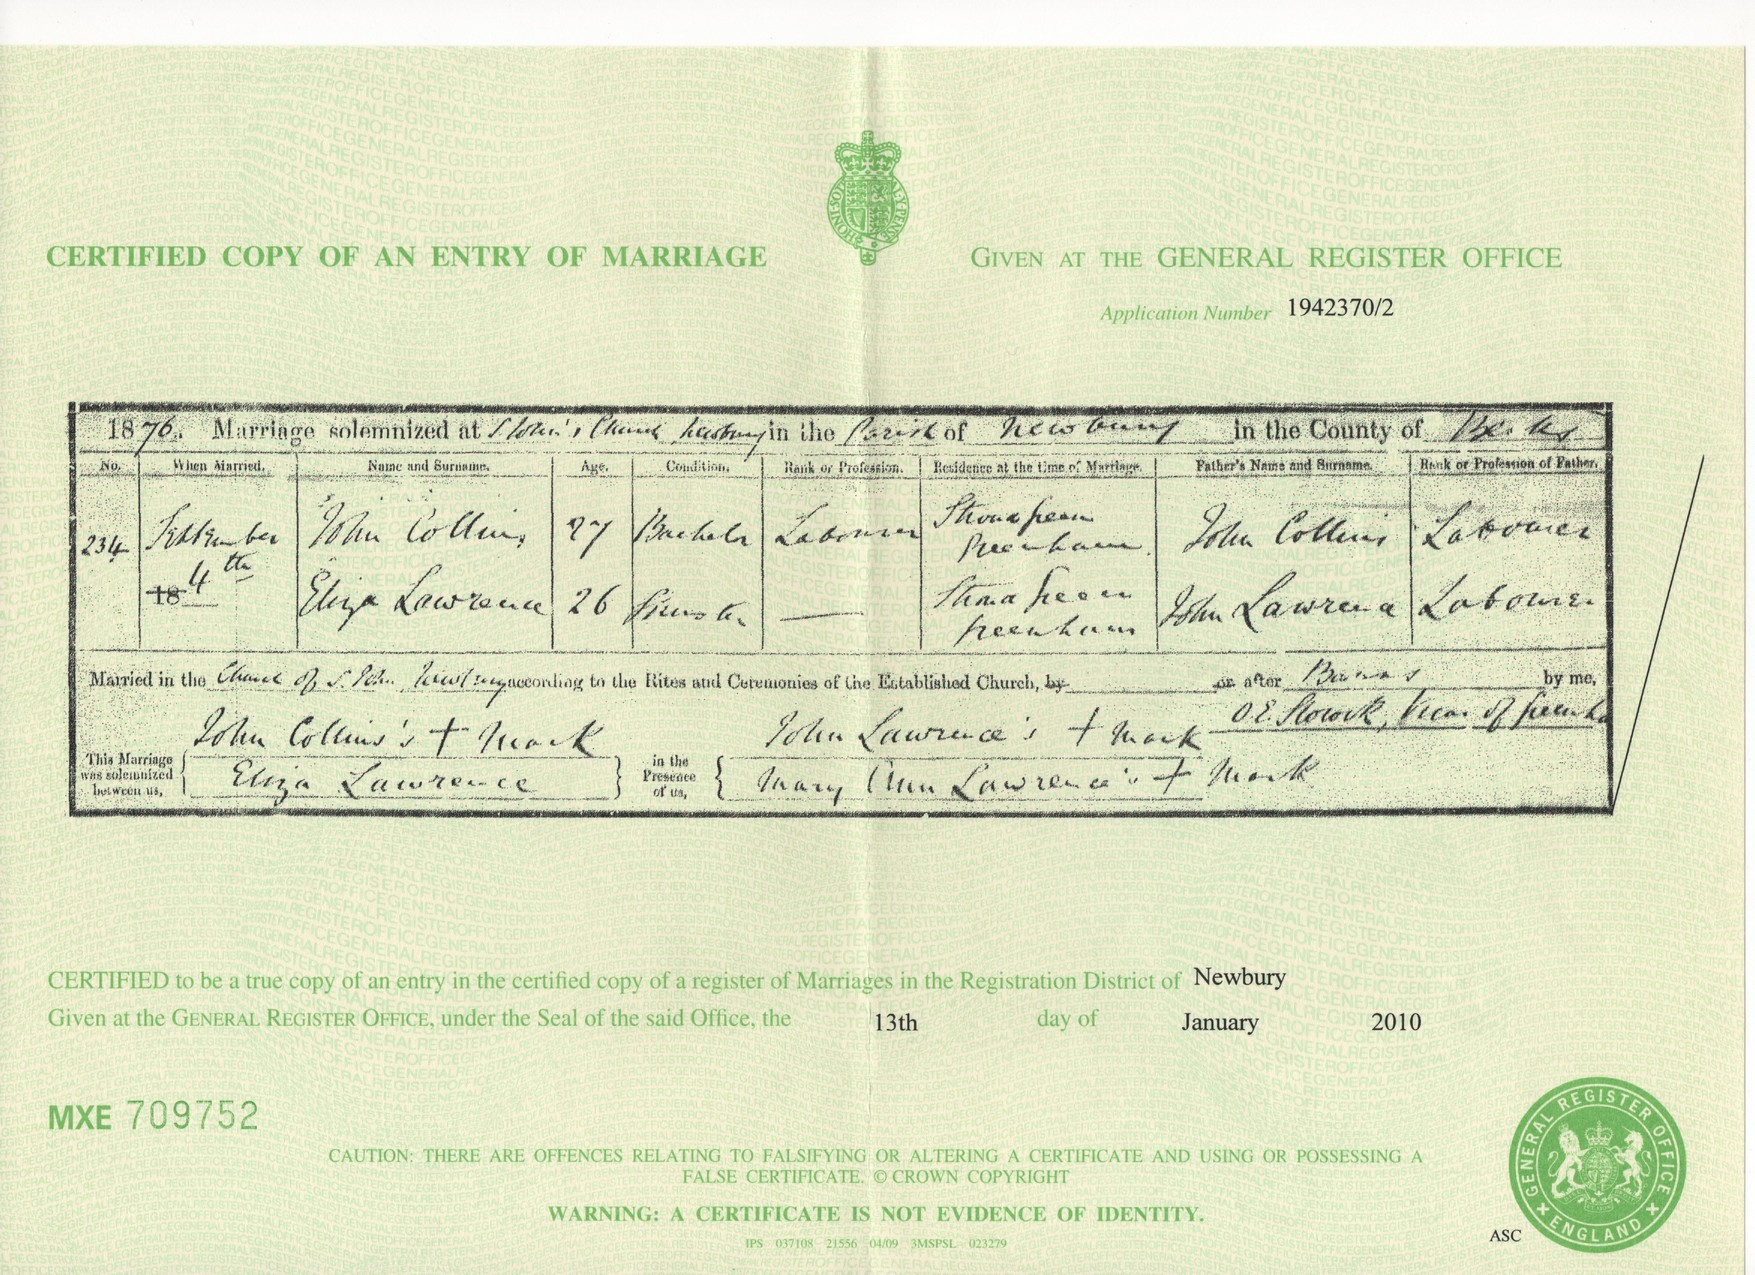 CERTIFIED COPY OF AN ENTRY OF MARRIAGE
GIVEN AT THE GENERAL REGISTER OFFICE
Application Number 1942370/2
1876. Marriage solemnized at S. John's Church Newbury in the Parish of Newbury in the County of Berks
No. When Married. Name and Surname. Age. Condition. Rank or Profession. Residence at the time of Marriage. Father's Name and Surname. Rank or Profession of Father.
234 September 4th 18 John Collins 27 Bachelor Labourer Greenham John Collins Labourer
Eliza Lawrence 26 Spinster — Greenham John Lawrence Labourer
Married in the Church of S. John Newbury according to the Rites and Ceremonies of the Established Church, by or after Banns by me,
Vicar of
John Collins's + Mark John Lawrence's + Mark
This Marriage was solemnized between us, Eliza Lawrence in the Presence of us, Mary Ann Lawrence's + Mark
CERTIFIED to be a true copy of an entry in the certified copy of a register of Marriages in the Registration District of Newbury
Given at the GENERAL REGISTER OFFICE, under the Seal of the said Office, the 13th day of January 2010
MXE 709752
CAUTION: THERE ARE OFFENCES RELATING TO FALSIFYING OR ALTERING A CERTIFICATE AND USING OR POSSESSING A
FALSE CERTIFICATE. © CROWN COPYRIGHT
WARNING: A CERTIFICATE IS NOT EVIDENCE OF IDENTITY.
IPS 037108 21556 04/09 3MSPSL 023279
ASC
GENERAL REGISTER OFFICE
ENGLAND